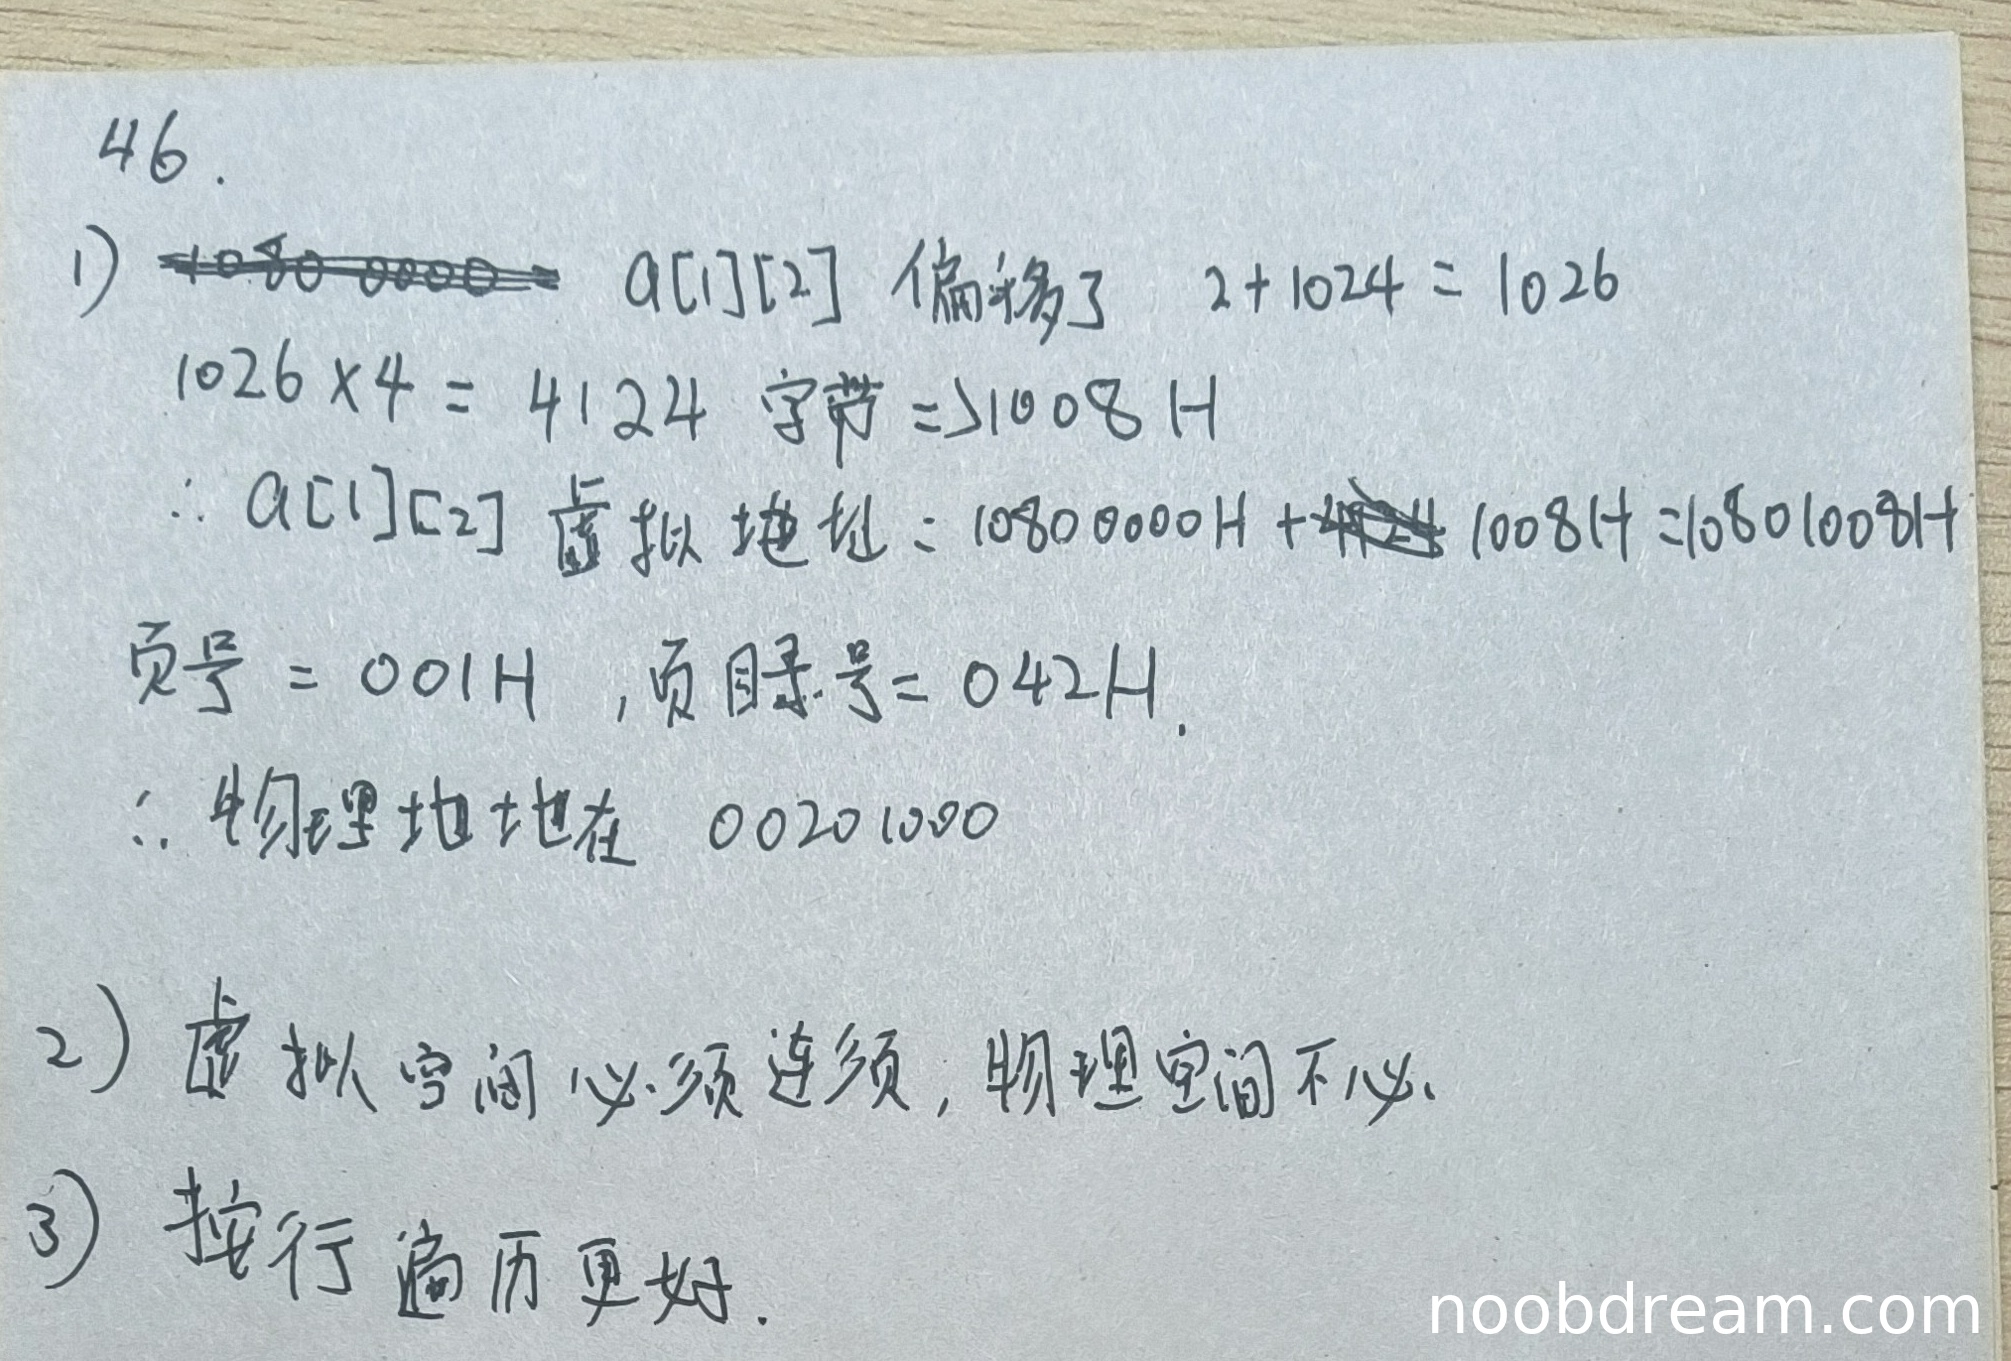 46.
1) a[1][2] 偏移了 2+1024 = 1026
1026×4 = 4124 字节 =>1008H
∴ a[1][2] 虚拟地址 = 10800000H + 1008H =10801008H
页号 = 001H , 页目录号 = 042H.
∴ 物理地地在 00201000
2) 虚拟空间必须连须, 物理空间不必.
3) 按行遍历更好.
noobdream.com